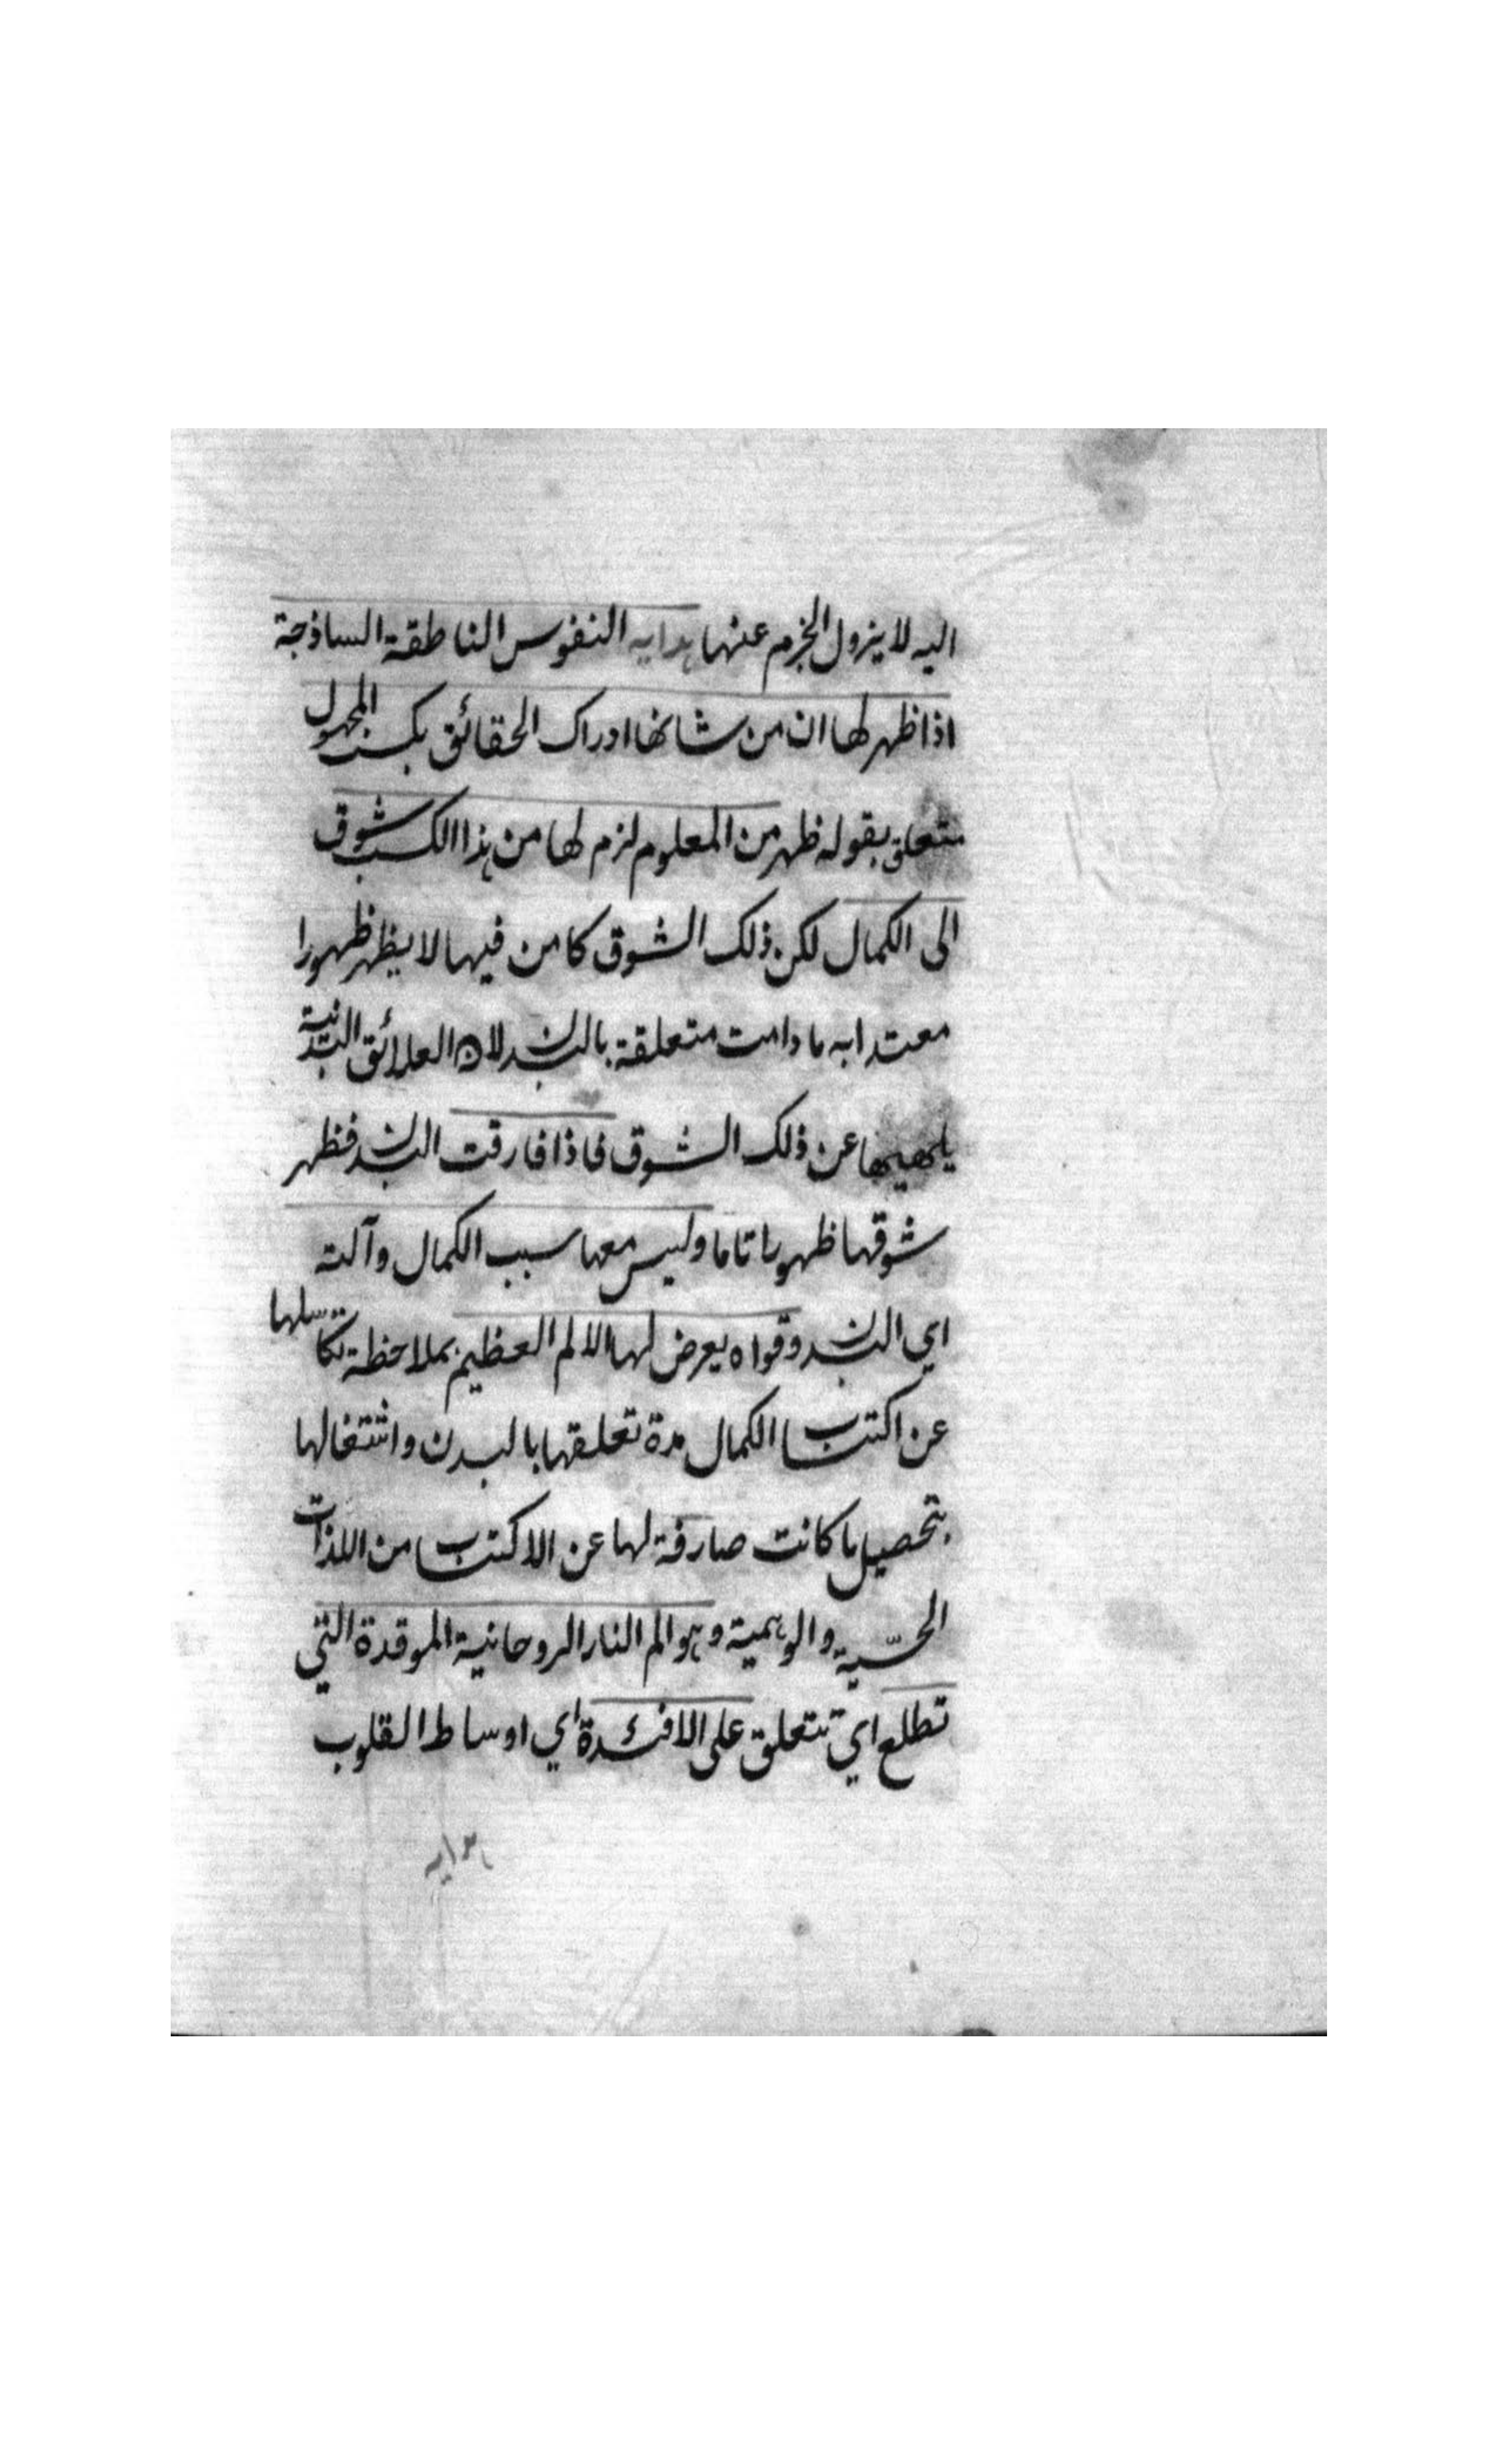 اليه لا يزول الجزم عنها هدايه النفوس الناطقة الساذجة
اذا ظهر لها ان من شانها ادراك الحقائق بكسب المجهول
متعلق بقوله ظهر من المعلوم لزم لها من هذا الكسب شوق
الى الكمال لكن ذلك الشوق كامن فيها لا يظهر ظهورا
معتدا به ما دامت متعلقة بالبدن لان العلائق البدنية
يلهيها عن ذلك الشوق فاذا فارقت البدن فظهر
شوقها ظهورا تاما وليس معها سبب الكمال وآلته
اي البدن وقواه يعرض لها الالم العظيم بملاحظة تكاسلها
عن اكتساب الكمال مدة تعلقها بالبدن واشتغالها
بتحصيل ما كانت صارفة لها عن الاكتساب من اللذات
الحسّية والوهمية وهو الم النار الروحانية الموقدة التي
تطلع اي تتعلق على الافئدة اي اوساط القلوب
هدايه